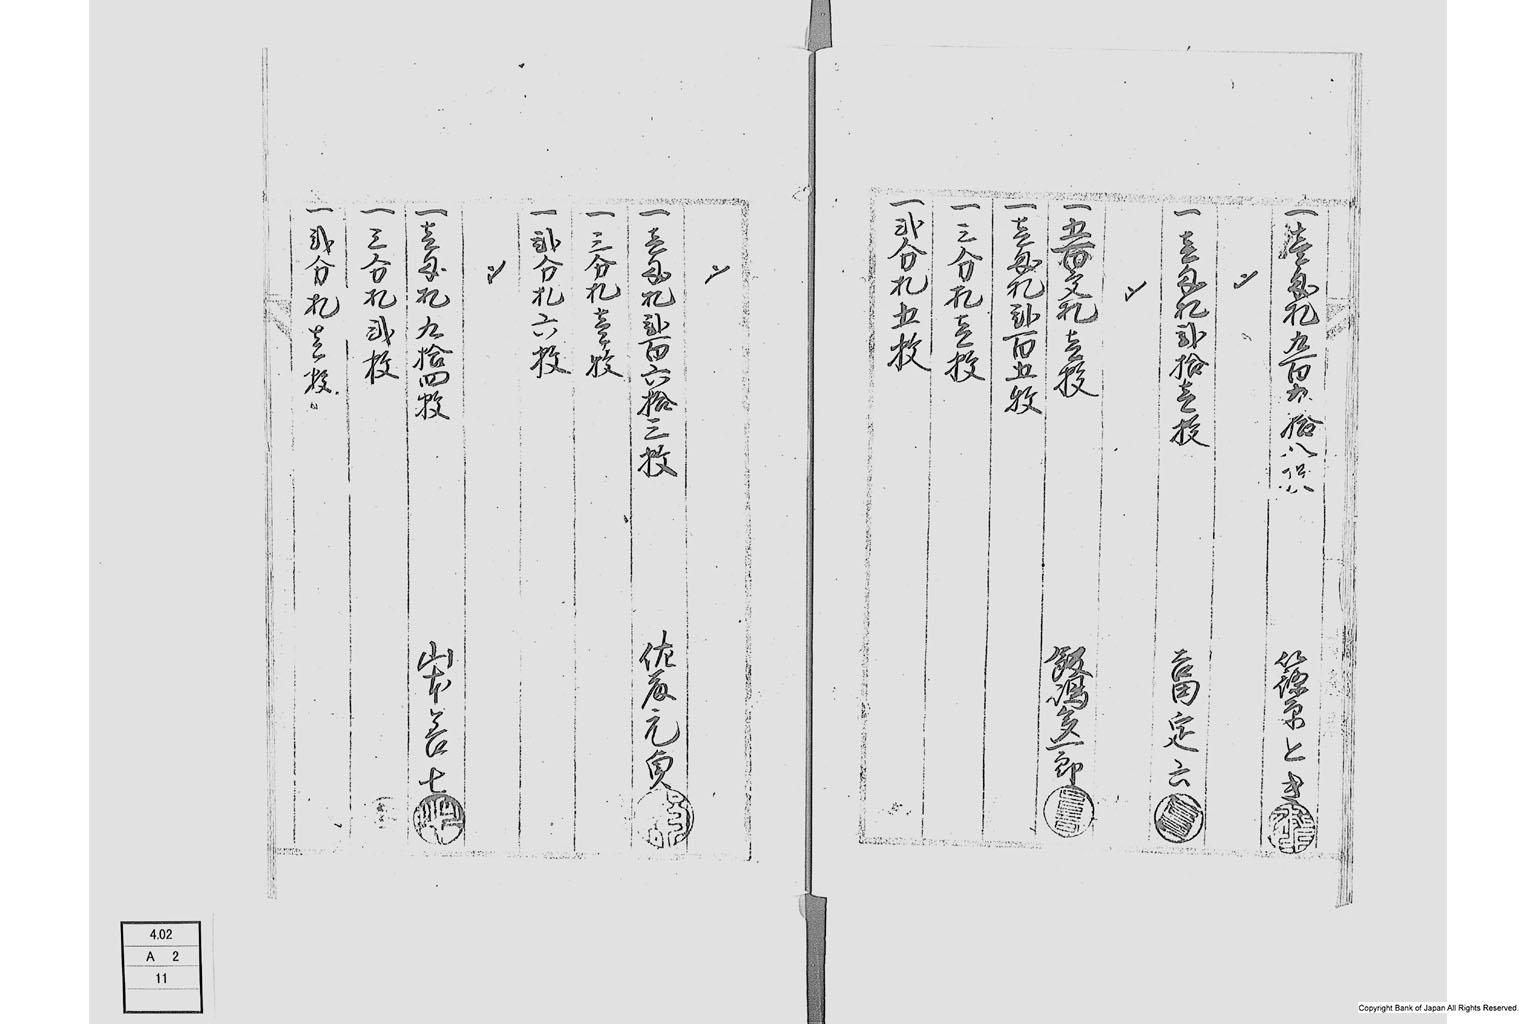 一壱匁札九百九拾八枚　篠原とき
一壱匁札弐拾壱枚　高田定六
一五百文札壱枚　飯嶋文一郎
一壱匁札弐百五枚
一三分札壱枚
一弐分札五枚
一壱匁札弐百六拾三枚　佐藤元貞
一三分札壱枚
一弐分札六枚
一壱匁札九拾四枚　山本善七
一三分札弐枚
一弐分札壱枚
4.02
A 2
11
Copyright Bank of Japan All Rights Reserved.